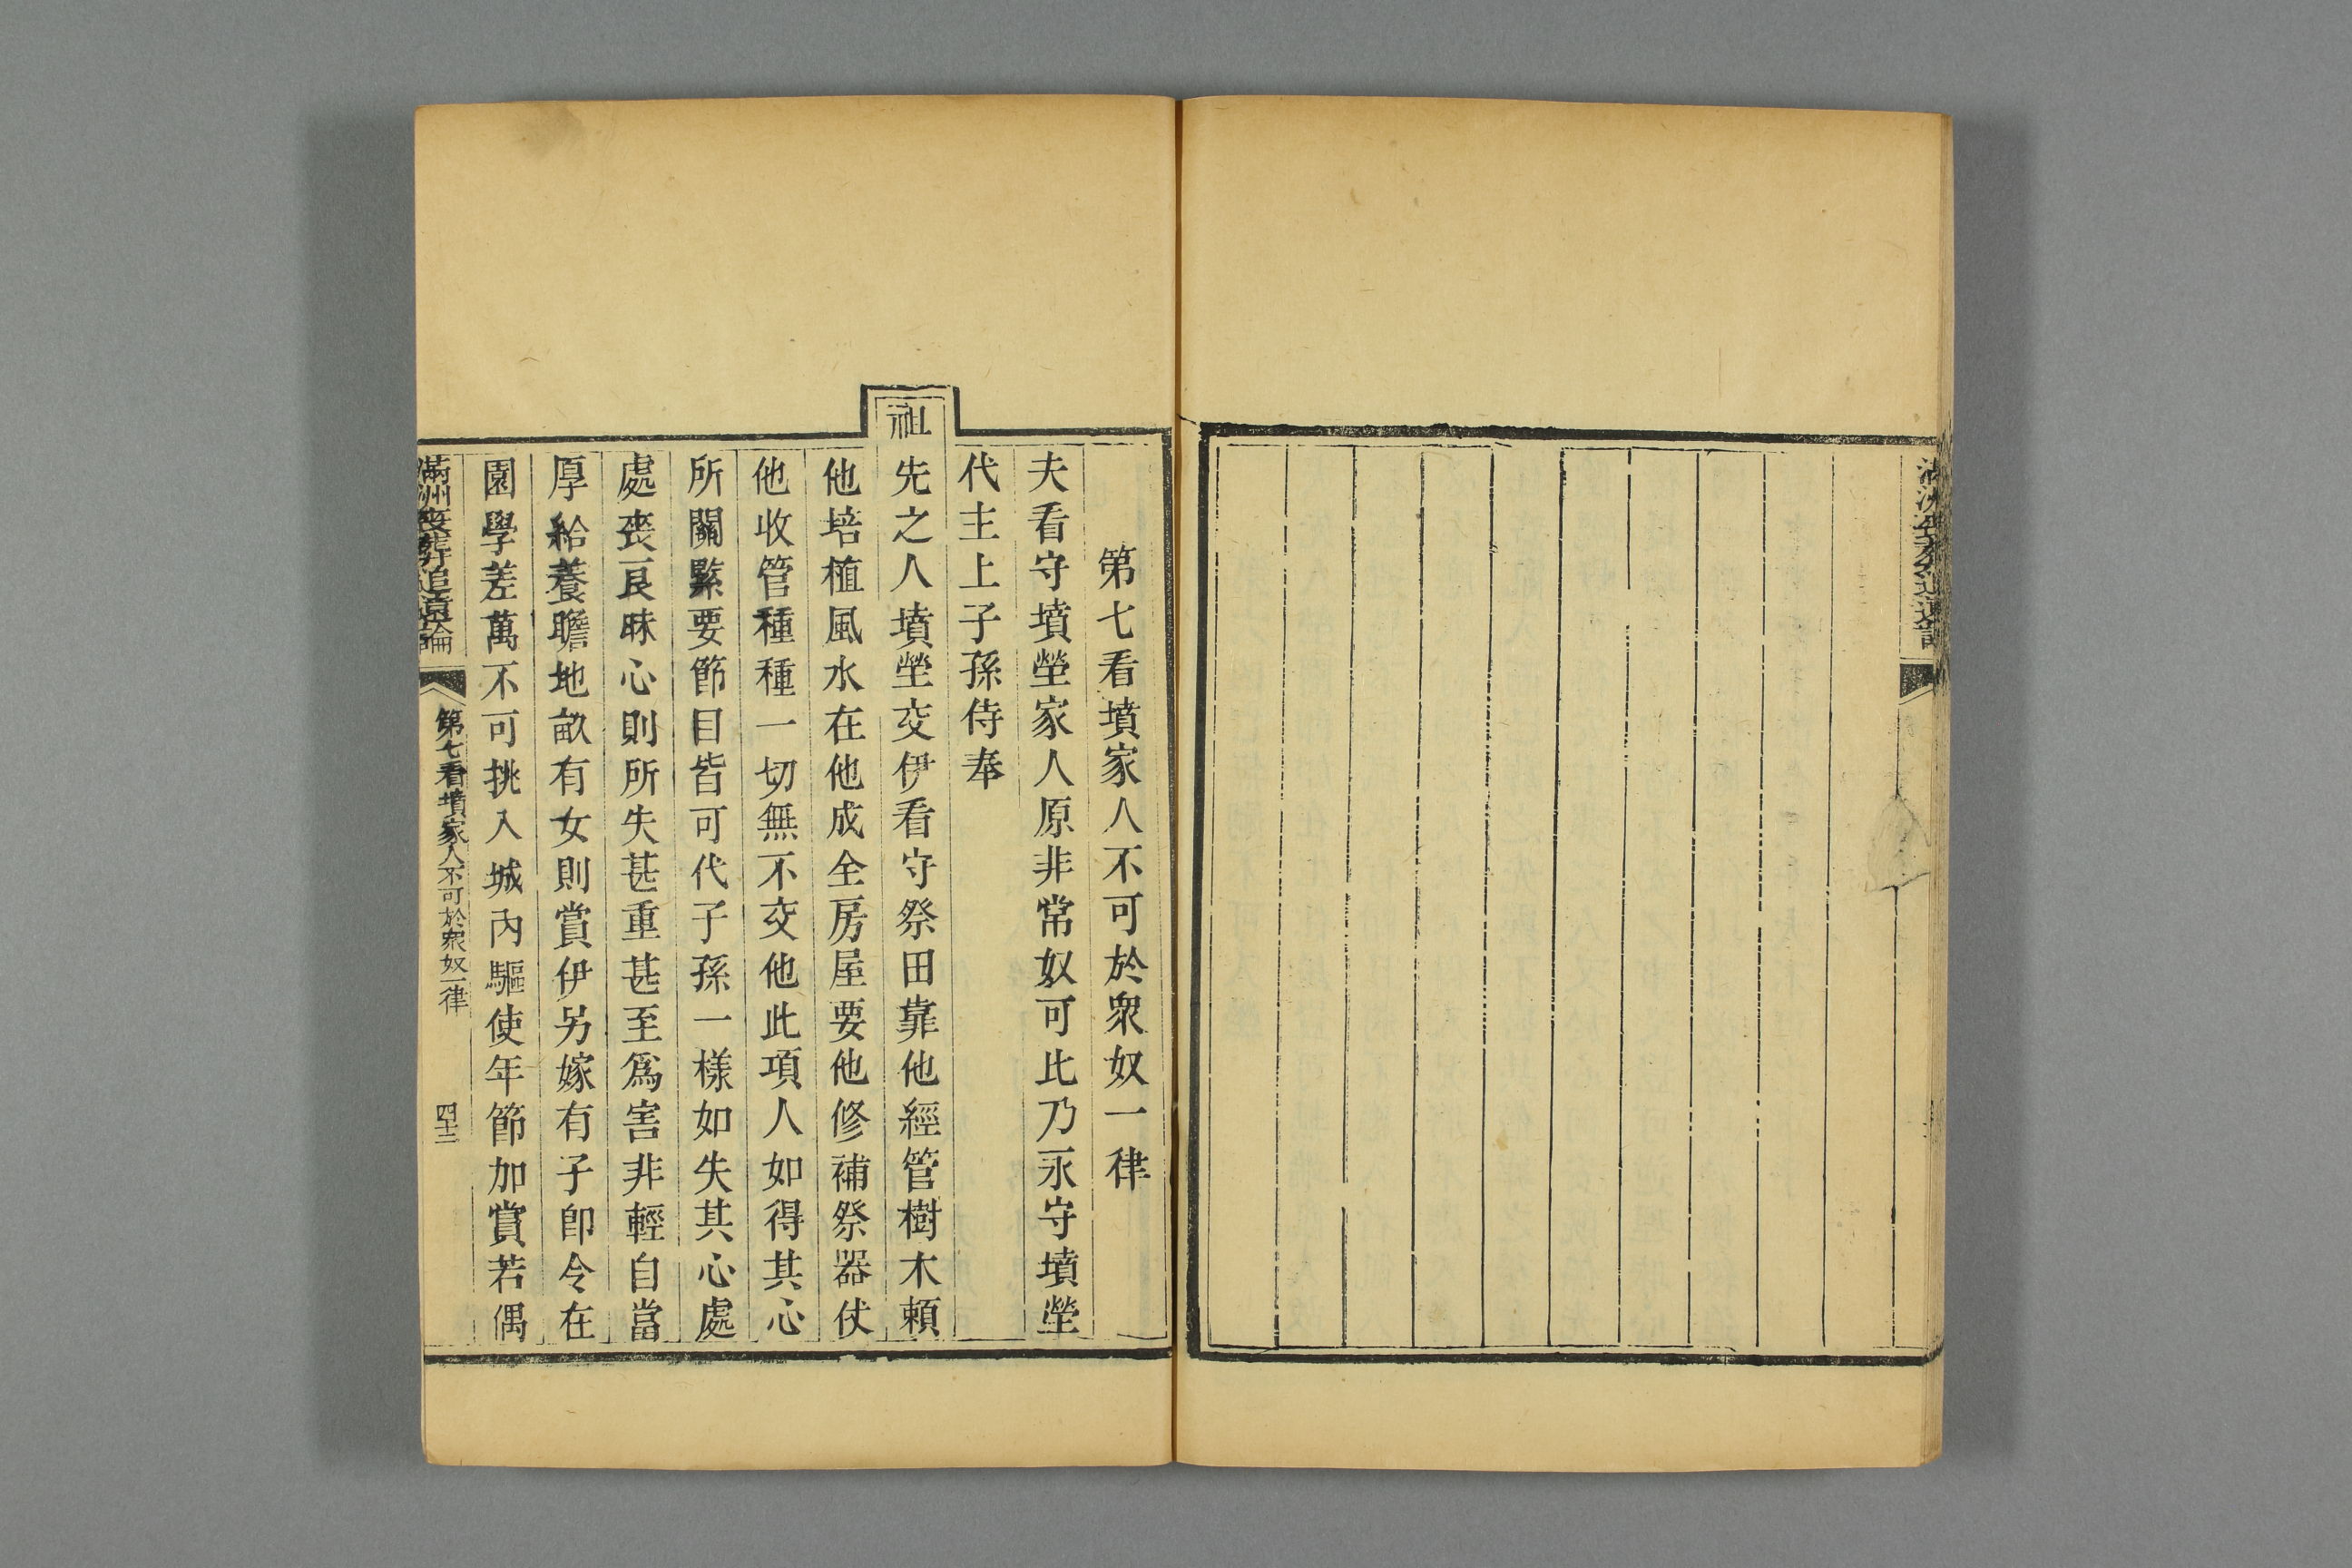 第七看墳家人不可於衆奴一律
夫看守墳塋家人原非常奴可比乃永守墳塋
代主上子孫侍奉
祖先之人墳塋交伊看守祭田靠他經管樹木賴
他培植風水在他成全房屋要他修補祭器仗
他收管種種一切無不交他此項人如得其心
所關緊要節目皆可代子孫一樣如失其心處
處喪良昧心則所失甚重甚至爲害非輕自當
厚給養贍地畝有女則賞伊另嫁有子卽令在
園學差萬不可挑入城內驅使年節加賞若偶
滿洲喪葬追遠論
第七看墳家人不可於衆奴一律
四十三